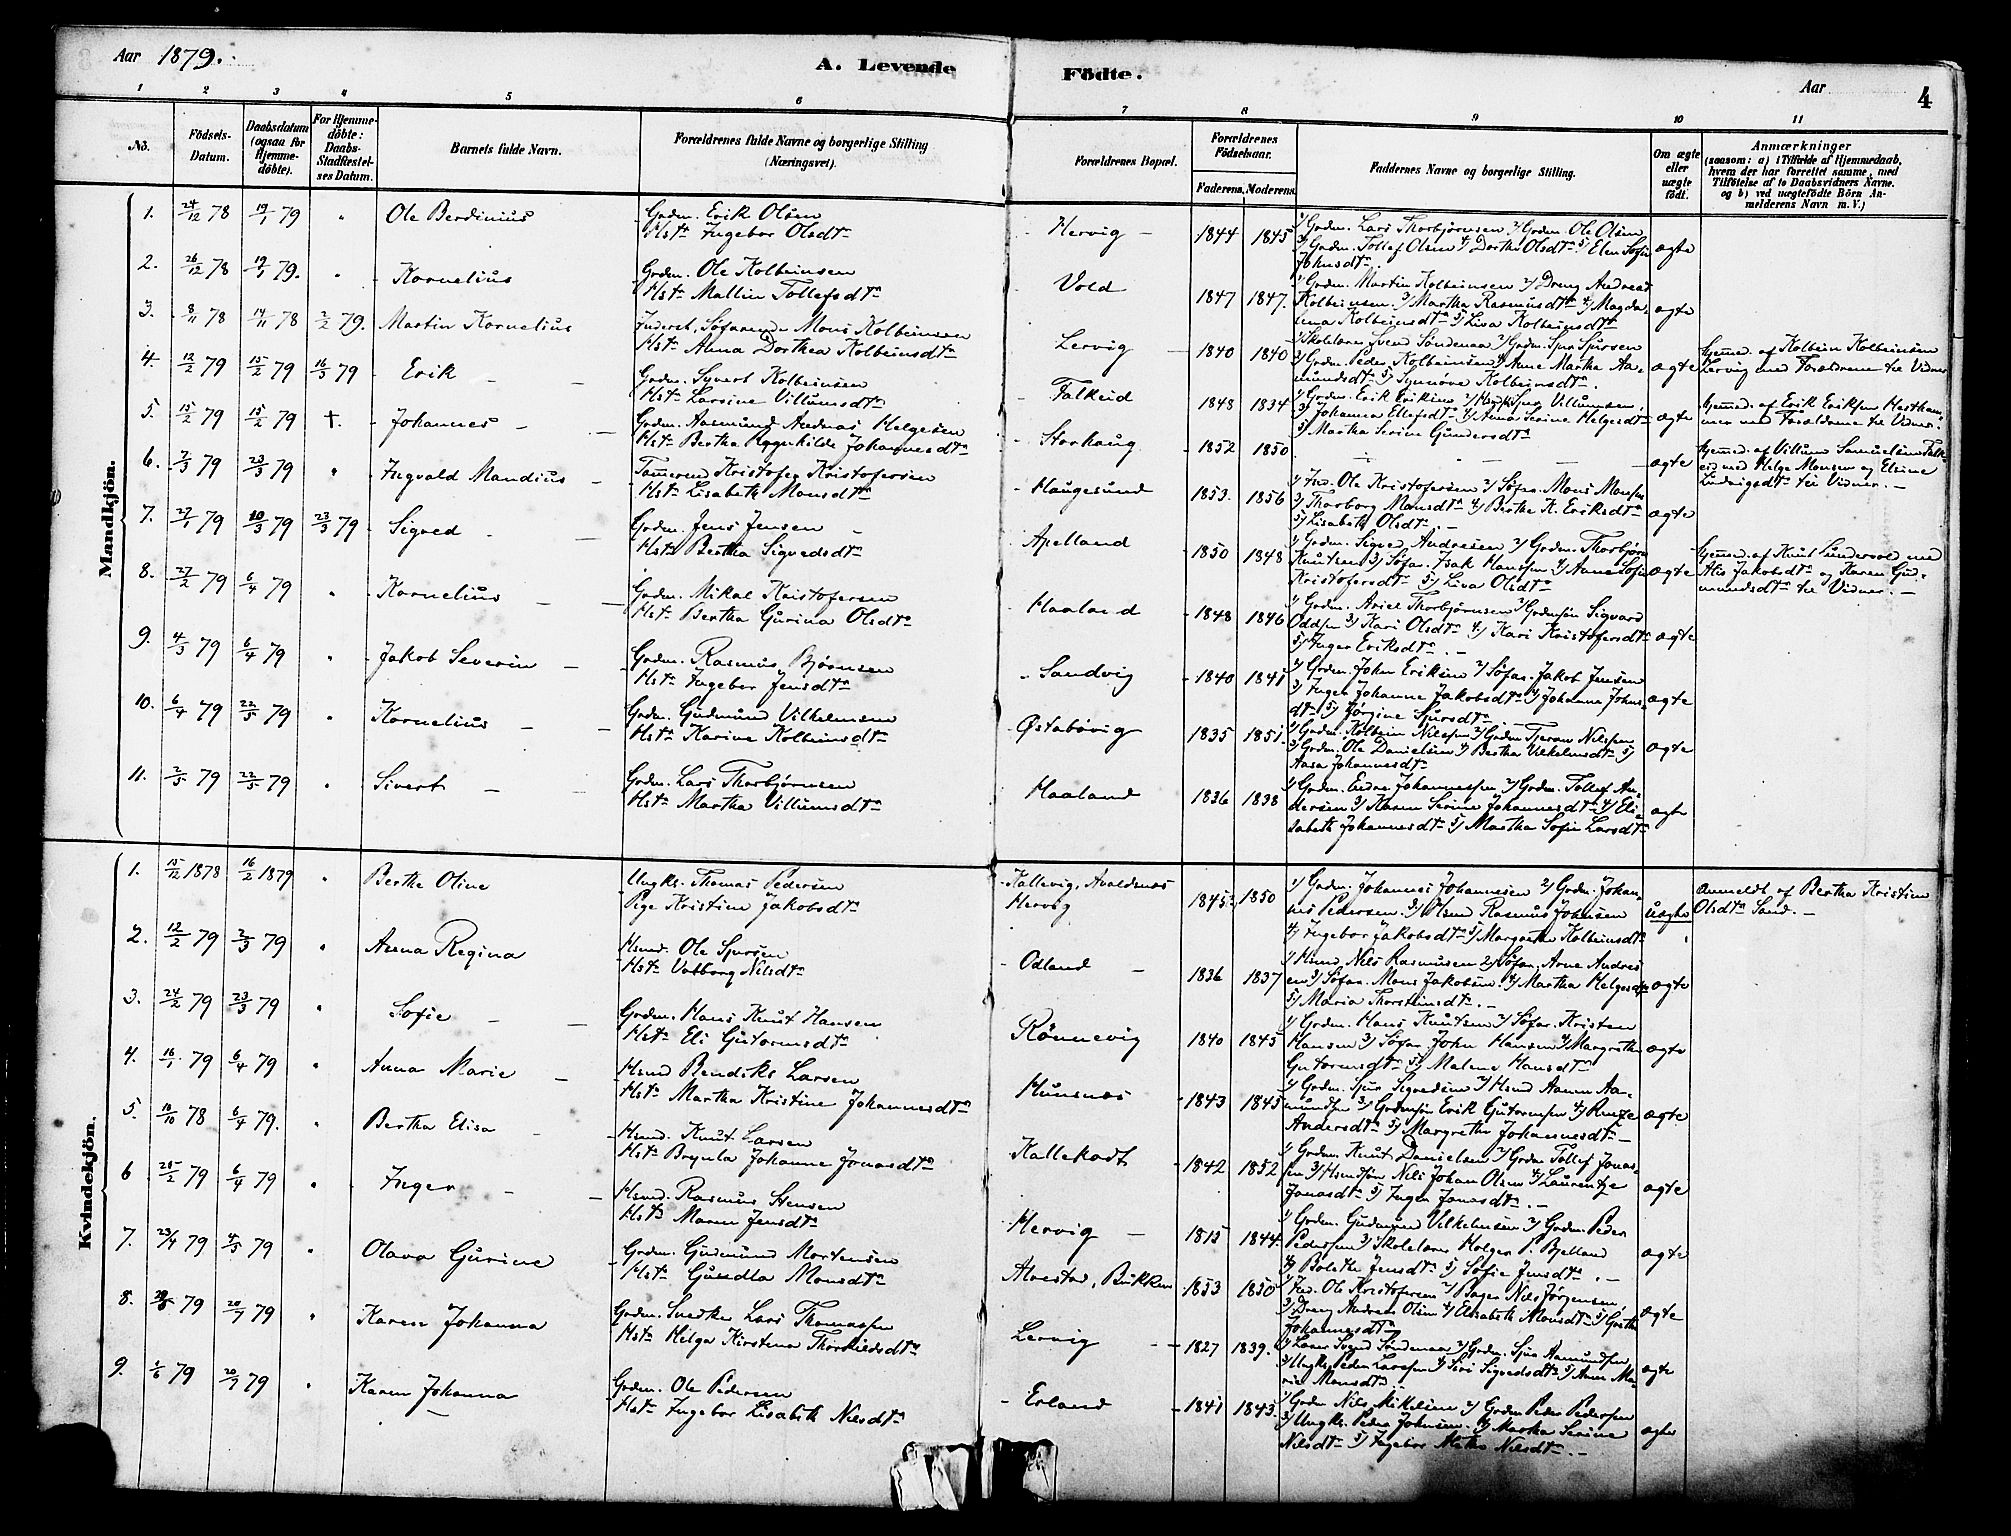 Aar 1879.
A. Levende Födte.
Aar
4
1 2 3 4 5 6 7 8 9 10 11
No.
Födsels-Datum.
Daabsdatum (ogsaa for Hjemme-döbte).
For Hjemme-döbte: Daabs-Stadfæstel-ses Datum.
Barnets fulde Navn.
Forældrenes fulde Navne og borgerlige Stilling (Næringsvei).
Forældrenes Bopæl.
Forældrenes Födselsaar.
Faderens. Moderens.
Faddernes Navne og borgerlige Stilling.
Om ægte eller uægte födt.
Anmærkninger
(saasom: a) i Tilfælde af Hjemmedaab, hvem der har forrettet samme, med Tilföielse af to Daabsvidners Navne. og b) ved uægtefödte Börn An-melderens Navn m. V.)
Mandkjön.
1. 24/12 78 19/1 79 " Ole Berdinius
Grdm. Erik Olsen
Hst. Ingebor Olsdtr
Hervig 1844 1845
1) Grdm. Lars Thorbjørnsen 2) Grdm. Ole Olsen
3) Grdm. Tollef Olsen 4) Dorthe Olsdtr 5) Elen Sofie
Johnsdtr
ægte
2. 26/12 78 19/1 79. " Kornelius
Grdm. Ole Kolbeinsen
Hst. Mallin Tollefsdtr
Vold 1847 1847.
1) Grdm. Martin Kolbeinsen 2) Dreng Andreas
Kolbeinsen 3) Martha Rasmusdtr 4) Magda-
lena Kolbeinsdtr 5) Lisa Kolbeinsdtr
ægte
3. 8/11 78 14/11 78 2/2 79. Martin Kornelius
Inderst, Søfarende Mons Kolbeinsen
Hst. Anna Dorthea Kolbeinsdtr
Lervig 1840 1840
1) Skolelærer Svend Søndenaa 2) Grdm. Sjur Sjursen
3) Grdm. Peder Kolbeinsen 4) Anne Marthe Aa-
mundsdtr 5) Synnøve Kolbeinsdtr.
ægte
hjemmed. af Kolbein Kolbeinsen
Lervig med Forældrene til Vidner
4. 12/2 79 15/2 79 16/3 79 Erik
Grdm. Syvert Kolbeinsen
Hst. Larsine Villumsdtr
Falkeid 1848 1834
1) Grdm. Erik Eriksen Villumsen,
3) Johanna Ellefsdtr 4) Anna Serine Helgesdtr
5) Martha Serine Gundersdtr
ægte
hjemmed. af Erik Eriksen Hestham-
mer med Forældrene til Vidner.
5. 15/2 79 15/2 79 †. Johannes
Grdm. Aasmund Andreas Helgesen
Hst. Bertha Johannesdtr
Storhaug 1852 1850
ægte
hjemmed. af Villum Samuelsen Falk-
eid med Helge Monsen og Elsine
Ludvigsdtr til Vidner.
6. 7/3 79 23/3 79 " Ingvald Mandius
Tømmermd Kristofer Kristofersen
Hst. Lisabeth Monsdtr
Haugesund 1853. 1856
1) Ind. Ole Kristofersen 2) Søfar. Mons Monsen
3) Thorborg Monsdtr 4) Berthe K. Eriksdtr
5) Lisabeth Olsdtr.
ægte
7. 27/1 79 10/3 79 23/3 79 Sigved
Grdm. Jens Jensen
Hst. Bertha Sigvedsdtr
Apelland 1850 1848
1) Grdm. Sigved Andresen 2) Grdm. Thorbjørn
Knutsen 3) Søfar. Isak Hansen 4) Anne Sofie
Kristofersdtr 5) Lisa Olsdtr
ægte
hjemmed. af Knut Sundersvold med
Alis Jakobsdtr og Karen Gud-
mundsdtr til Vidner.
8. 27/2 79 6/4 79 " Kornelius
Grdm. Mikal Kristofersen
Hst. Bertha Gurina Olsdtr
Haaland 1848 1846
1) Grdm. Ariel Thorbjørnsen 2) Grdmsøn Sigvard
Oddsen 3) Kari Olsdtr 4) Kari Kristofersdtr
5) Inger Eriksdtr.
ægte
9. 4/3 79 6/4 79 " Jakob Severin
Grdm. Rasmus Bjørnsen
Hst. Ingebor Jensdtr
Sandvig 1840 1841
1) Grdm. John Eriksen 2) Søfar. Jakob Jensen
3) Inger Johanne Jakobsdtr 4) Johanna Johns-
dtr 5) Jørgine Sjursdtr
ægte
10. 6/4 79 22/5 79 " Kornelius
Grdm. Gudmund Vilhelmsen
Hst. Karine Kolbeinsdtr
Østabøvig 1835 1851.
1) Grdm. Kolbein Nilssen 2) Grdm Tjeran Nilssen
3) Grdm. Ole Danielsen 4) Bertha Vilhelmsdtr 5)
Aasa Johannesdtr
ægte
11. 2/5 79 22/5 79 " Sivert
Grdm. Lars Thorbjørnsen
Hst. Martha Villumsdtr
Haaland 1836 1838
1) Grdm. Endre Johannessen 2) Grdm. Tollef An-
dersen 3) Karen Serine Johannesdtr 4) Eli-
sabeth Johannesdtr 5) Martha Sofie Larsdtr
ægte
Kvindekjön.
1. 15/12 1878 16/2 1879 " Berthe Oline
Ungk. Thomas Pedersen
Pige Kristine Jakobsdtr
Kallevig, Avaldsnæs
Hervig 1845 1850
1) Grdm. Johannes Johannesen 2) Grdm. Johan-
nes Pedersen 3) Hsmd Rasmus Johnsen
4) Ingebor Jakobsdtr 5) Margrethe Kolbeinsdtr
uægte
Anmeldt af Bertha Kristine
Olsdtr Sand.
2. 12/2 79 2/3 79 " Anna Regina
Hsmd. Ole Sjursen
Hst. Valborg Nilsdtr
Odland 1836 1837
1) Hsmd Nils Rasmussen 2) Søfar. Arne Andres
en 3) Søfar. Mons Jakobsen 4) Martha Helgesdtr
5) Maria Thorsteinsdtr.
ægte
3. 24/2 79 23/3 79 " Sofie
Grdm. Hans Knut Hansen
Hst. Eli Gutormsdtr
Rönnevig 1840 1845
1) Grdm. Hans Knutsen 2) Søfar. Kristen
Hansen 3) Søfar. John Hansen 4) Margrethe
Gutormsdtr 5) Malene Hansdtr
ægte
4. 16/1 79 6/4 79 " Anna Marie
Hsmd Bendiks Larsen
Hst. Martha Kristine Johannesdtr
Hunsnæs 1843 1845
1) Grdm. Sjur Sigvedsen 2) Hsmd Aamun Aa-
mundsen 3) Grdmsøn Erik Gutormsen 4)
Andersdtr 5) Margrethe Johannesdtr
ægte
5. 10/10 78 6/4 79. " Bertha Elisa
Hsmd. Knut Larsen
Hst. Brynla Johanne Jonasdtr
Kallekodt 1842 1852
1) Grdm. Knut Danielsen 2) Grdm Tollef Jonas-
sen 3) Hsmdsøn Nils Johan Olsen 4) Laurentze
Jonasdtr 5) Inger Jonasdtr.
ægte
6 25/2 79 6/4 79 " Inger
Hsmd. Rasmus Stensen
Hst. Maren Jensdtr
Hervig 1815 1844.
1) Grdm. Gudmund Vilhelmsen 2) Grdm. Peder
Pedersen 3) Skolelærer Holger P. Bjelland
4) Bolethe Jensdtr 5) Sofie Jensdtr.
ægte
7. 23/4 79 4/5 79 " Olava Gurine
Grdm. Gudmund Mortensen
Hst. Gundla Monsdtr
Alvestad, Bukken 1853 1850
1) Ind. Ole Kristofersen 2) Bager Nils Jørgensen
3) Dreng Andreas Olsen 4) Elisabeth Monsdtr 5) Grethe
Johannesdtr
ægte
8. 79 20/7 79 " Karen Johanna
Grdm. Snedker Lars Thomassen
Hst. Helga Kirstena Thorkildsdtr
Lervig 1827 1839.
1) Lærer Svend Søndenaa 2) Grdm. Sjur Aamundsen
3) Ungk. Peder Larsen 4) Siri Sigvedsdtr 5) Anne Ma-
rie Monsdtr
ægte
9. 79 20/7 79 " Karen Johanna
Grdm. Ole Pedersen
Hst. Ingebor Lisabeth Nilsdtr
Erland 1841 1843.
1) Grdm Nils Mikelsen 2) Grdm Peder Pedersen
3) Ungk. Peder Johnsen. 4) Martha Serine
Nilsdtr 5) Ingebor Nilsdtr.
ægte